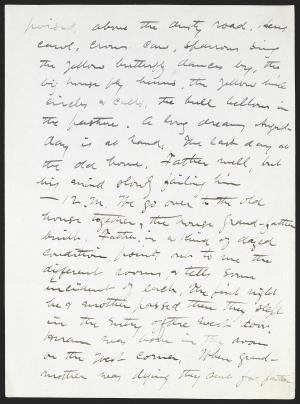 poised, above the dusty road. Hens
caw, crows caw, sparrows sing
the yellow butterfly dances by, the
big house fly hums, the yellow bird
circles & calls, the bull bellows in
the pasture. A long dreamy August
day is at hand. The last day at
the old home. Father well, but
his mind slowly failing him
— 12. M. We go over to the old
house together, the house grand-father
built. Father, in a kind of dazed
condition points out to me the
different rooms & tells some
incident of each. The first night
he & mother passed there they slept
in the entry of the west door.
Hiram was born in the room
on the West corner. When grand-
mother was dying they sent for father